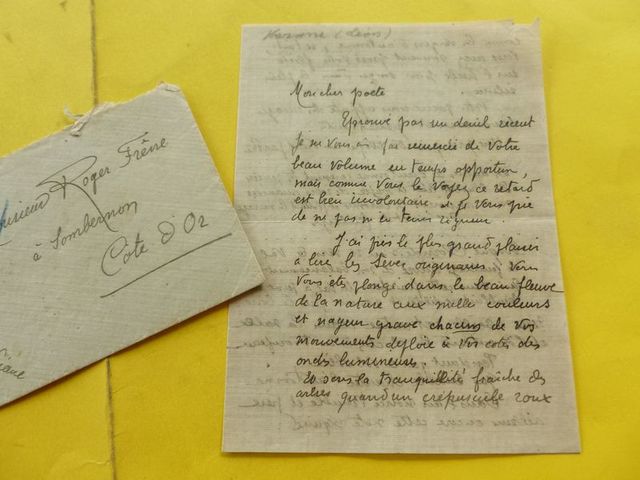 Monsieur Roger Frêne
à Sombernon
Côte d'Or
(Léon)
Mon cher poète
Eprouvé par un deuil récent
Je ne vous ai pas remercié de votre
beau volume en temps opportun,
mais comme vous le voyez ce retard
est bien involontaire et je vous prie
de ne pas m'en tenir rigueur.
J'ai pris le plus grand plaisir
à lire les Sèves originaires. Vous
vous êtes plongé dans le beau fleuve
de la nature aux mille couleurs
et nageur grave chacun de vos
mouvements déploie à vos côtés des
ondes lumineuses.
Et sous la tranquillité fraîche des
arbres quand un crépuscule roux